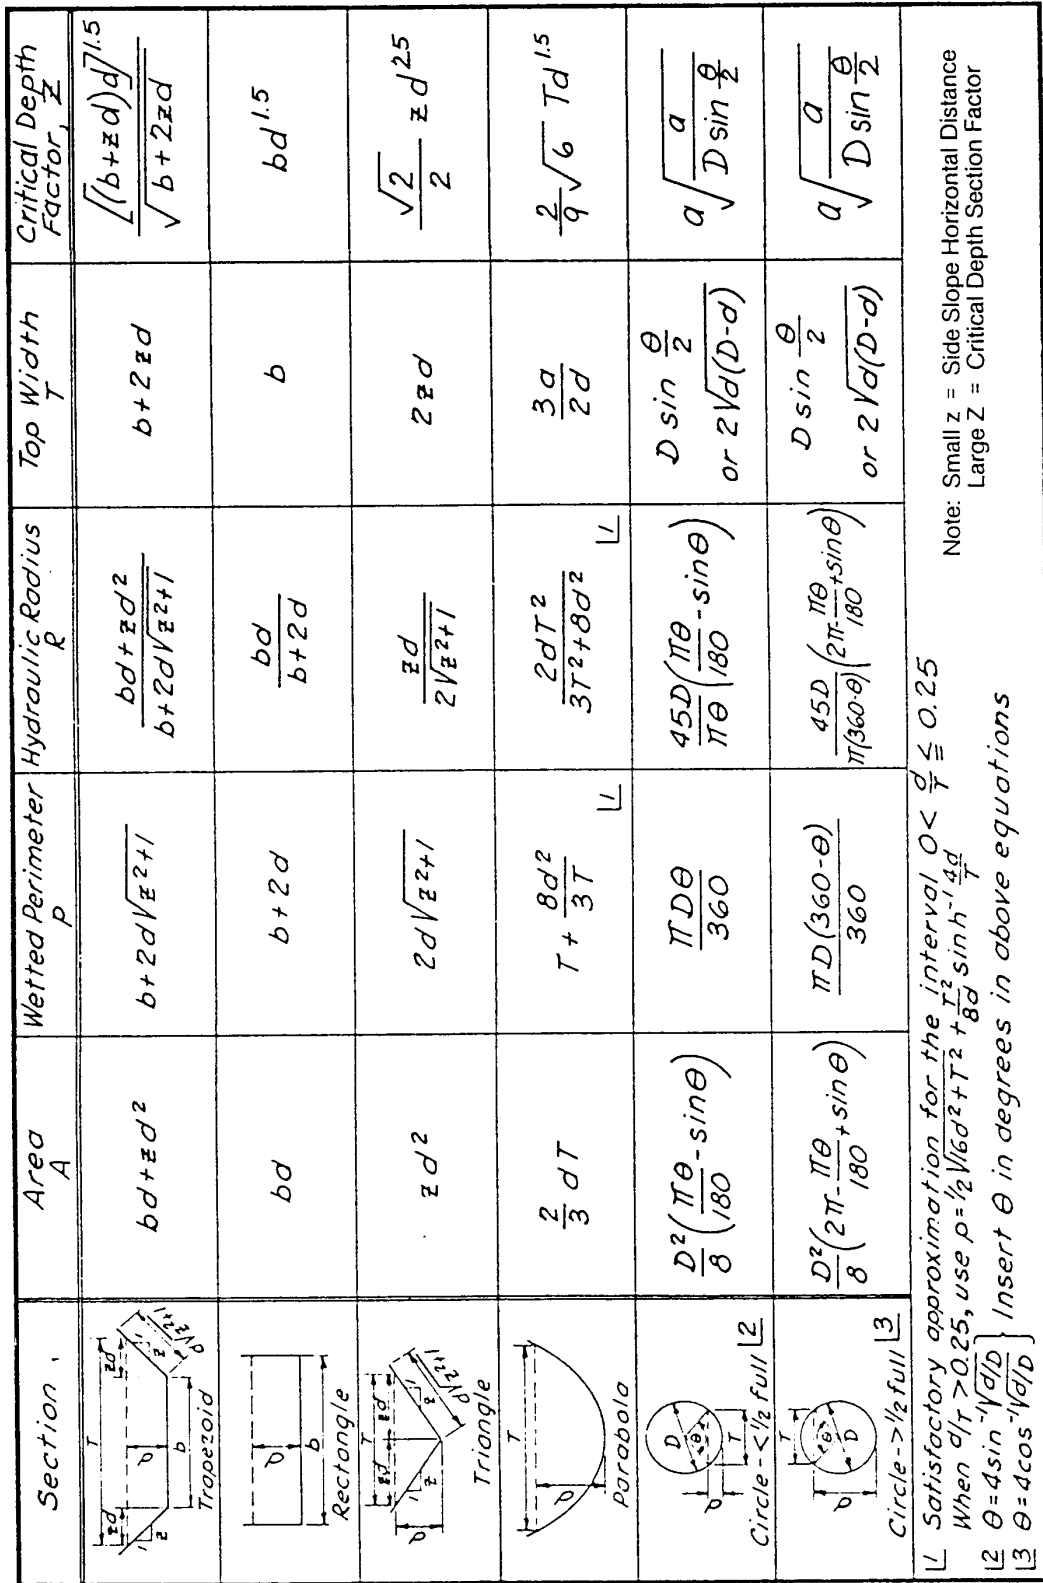 Section
Area
A
Wetted Perimeter
P
Hydraulic Radius
R
Top Width
T
Critical Depth
Factor, Z
zd T zd
1 z d b z 1 d√z²+1
Trapezoid
bd+zd²
b+2d√z²+1
bd+zd² / b+2d√z²+1
b+2zd
[(b+zd)d]^1.5 / √b+2zd
d b
Rectangle
bd
b+2d
bd / b+2d
b
bd^1.5
T
zd zd
d 1 z z 1 d√z²+1
Triangle
zd²
2d√z²+1
zd / 2√z²+1
2zd
√2 / 2 zd^2.5
T
d
Parabola
2/3 dT
T + 8d² / 3T |1
2dT² / 3T²+8d² |1
3a / 2d
2/9 √6 Td^1.5
D θ T d
Circle-<1/2 full |2
D²/8 (πθ/180 - sinθ)
πDθ / 360
45D/πθ (πθ/180 - sinθ)
D sin θ/2
or 2√d(D-d)
a√(a / D sin θ/2)
T θ D d
Circle->1/2 full |3
D²/8 (2π - πθ/180 + sinθ)
πD(360-θ) / 360
45D/π(360-θ) (2π - πθ/180 + sinθ)
D sin θ/2
or 2√d(D-d)
a√(a / D sin θ/2)
|1 Satisfactory approximation for the interval 0 < d/T ≦ 0.25
When d/T > 0.25, use p = 1/2√16d²+T² + T²/8d sinh⁻¹ 4d/T
|2 θ = 4sin⁻¹√d/D
|3 θ = 4cos⁻¹√d/D } Insert θ in degrees in above equations
Note: Small z = Side Slope Horizontal Distance
Large Z = Critical Depth Section Factor